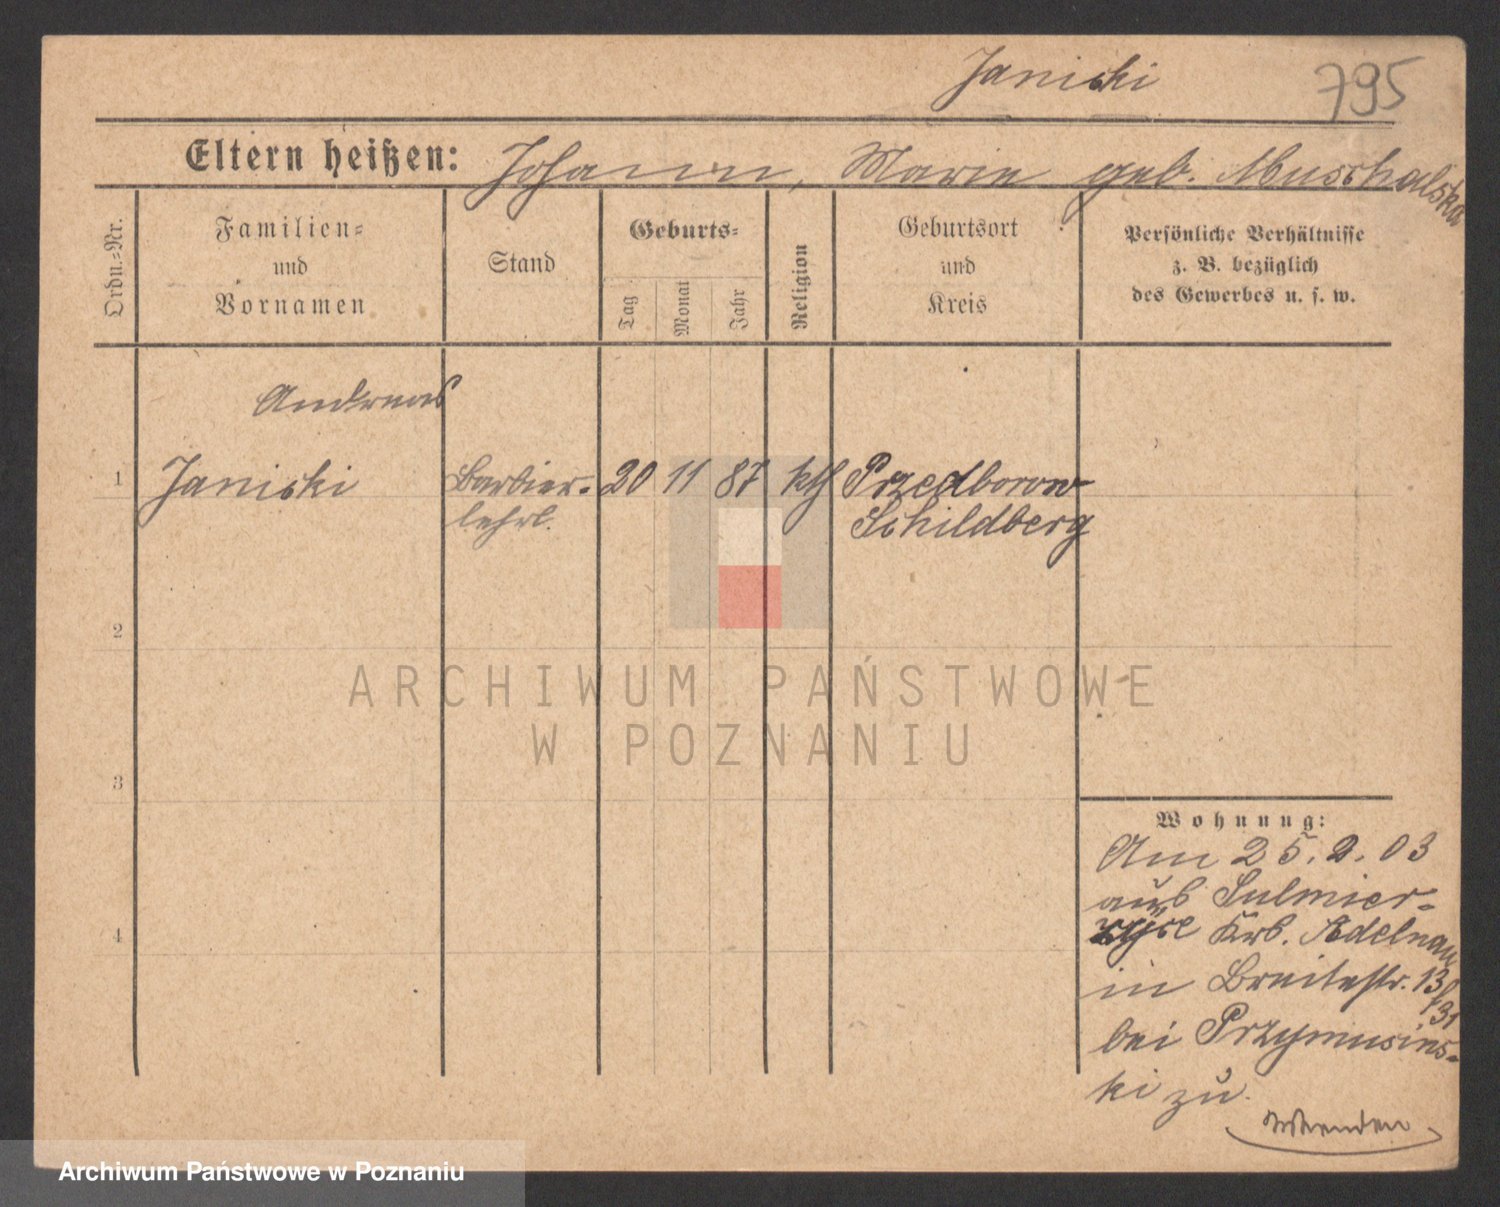 Janicki
795
Eltern heißen: Johann, Marie geb. Muschalska
Ordn.-Nr.
Familien-
und
Vornamen
Stand
Geburts-
Tag
Monat
Jahr
Religion
Geburtsort
und
Kreis
Persönliche Verhältnisse
z. B. bezüglich
des Gewerbes u. s. w.
Andreas
1 Janicki Barbier- 20 11 87 kth Przedborow
lehrl. Schildberg
2
3
4
ARCHIWUM PAŃSTWOWE
W POZNANIU
Wohnung:
Am 25. 2. 03
aus Sulmier-
Krs. Adelnau
in Breitestr. 13
bei Przymusins-
ki zu.
Wenden
Archiwum Państwowe w Poznaniu